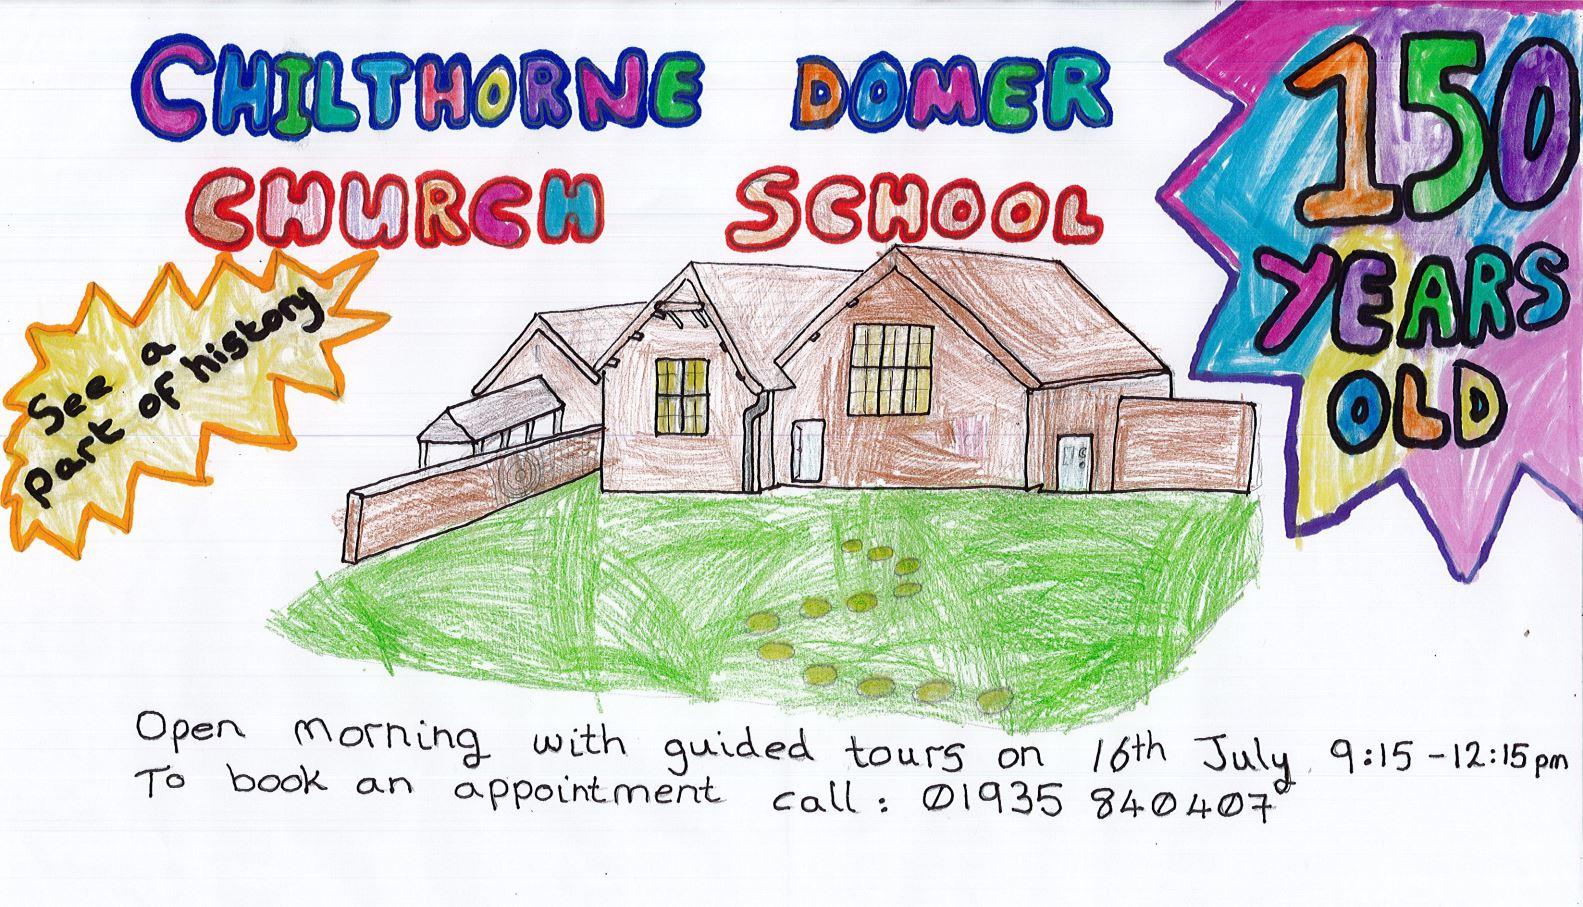 CHILTHORNE DOMER
CHURCH SCHOOL
150
YEARS
OLD
See a
part of history
Open morning with guided tours on 16th July 9:15-12:15pm
To book an appointment call: 01935 840407